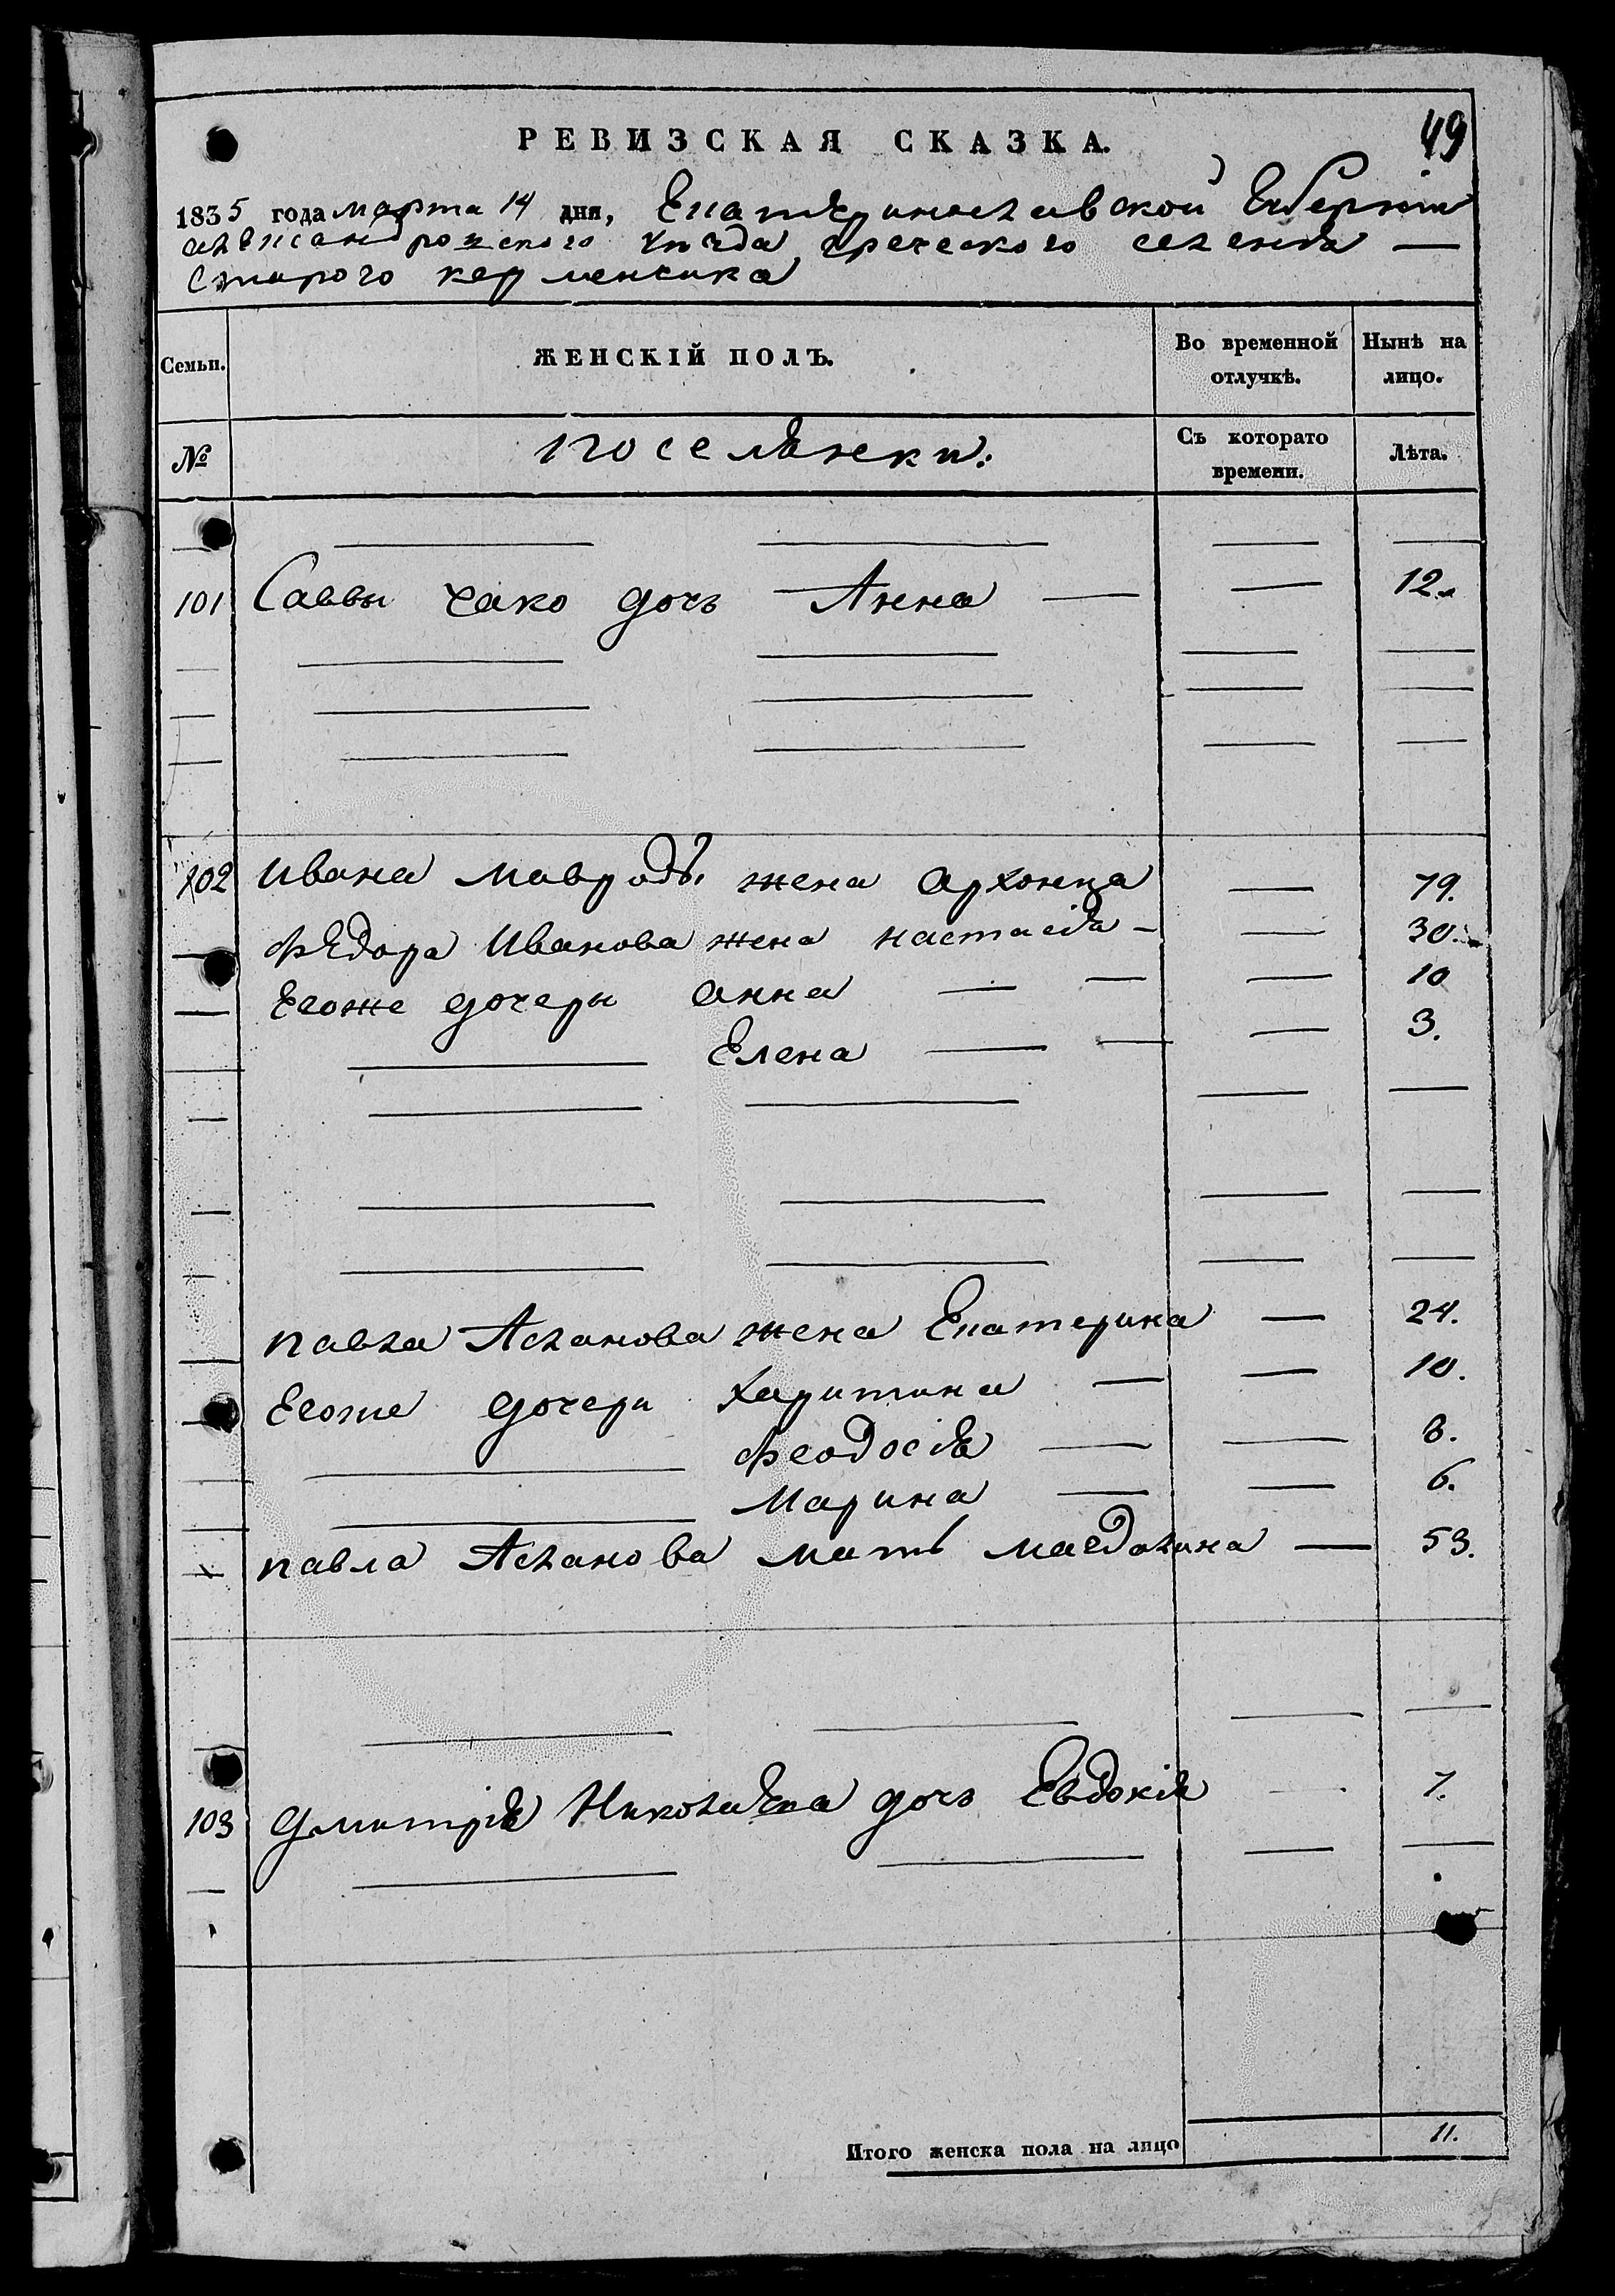 49
РЕВИЗСКАЯ СКАЗКА.
1835 года марта 14 дня, Екатеринославской Губерніи
александровского уезда, греческого селенія —
Старого керменчика
Семьи. ЖЕНСКІЙ ПОЛЪ. Во временной отлучкѣ. Нынѣ на лицо.
№ поселянки: Съ которато времени. Лѣта.
101 Саввы чако дочь Анна — — 12.
102 Ивана Мавроды жена Архонца — 79.
Федора Иванова жена настасія — — 30.
Егоже дочери анна — — — 10
— Елена — — — 3.
павла Асланова жена Екатерина — 24.
Егоже дочери харитина — — 10.
— феодосія — — 8.
— Марина — — 6.
павла Асланова мать магдалина — 53.
103 Дмитрія Николаева дочь Евдокія — 7.
Итого женска пола на лицо 11.